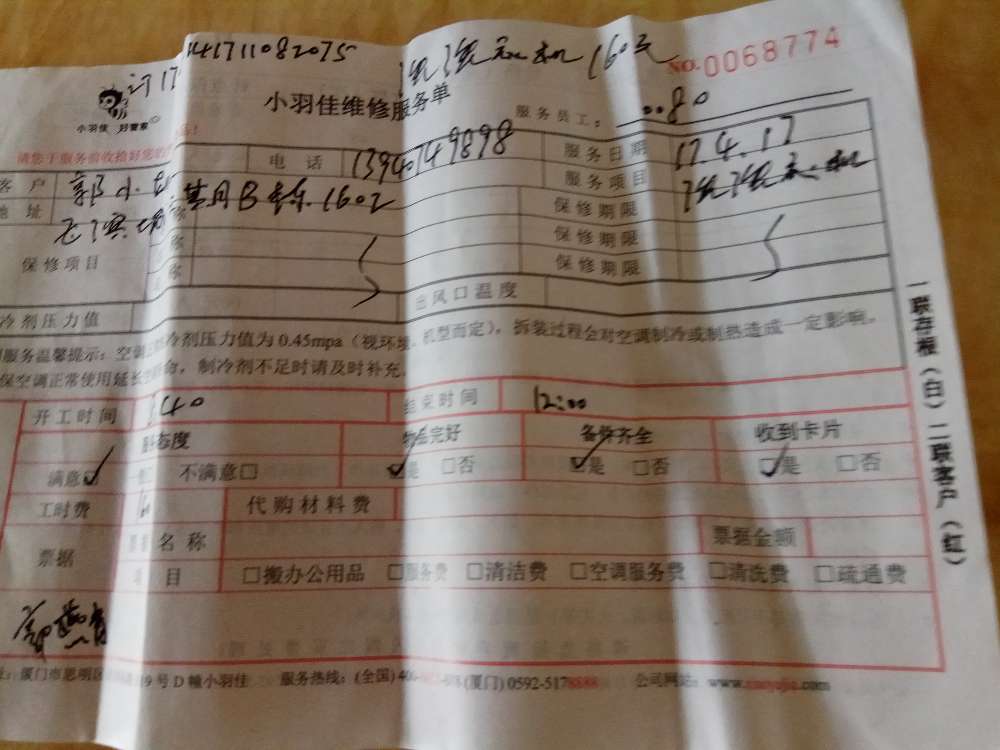 141711082075 160元 NO.0068774
小羽佳 好管家
小羽佳维修服务单 服务员工: 0080
请您于服务前收拾好您的
客户 郭小 电话 13940749898 服务日期 17.4.17
地址 1602 服务项目
保修期限
保修项目 保修期限
保修期限
冷剂压力值 出风口温度
服务温馨提示: 空调 冷剂压力值为 0.45mpa (视环境、机型而定), 拆装过程会对空调制冷或制热造成一定影响。
保空调正常使用延长 命, 制冷剂不足时请及时补充
开工时间 40 结束时间 12:00
态度 物品完好 备件齐全 收到卡片
满意☑ 不满意□ ☑是 □否 ☑是 □否 ☑是 □否
工时费 代购材料费
票据 名称 票据金额
项目 □搬办公用品 □服务费 □清洁费 □空调服务费 □清洗费 □疏通费
厦门市思明区 9号D幢小羽佳 服务热线: (全国) 400 (厦门) 0592-5178888 公司网站: www.xiaoyujia.com
一联存根(白) 二联客户(红)